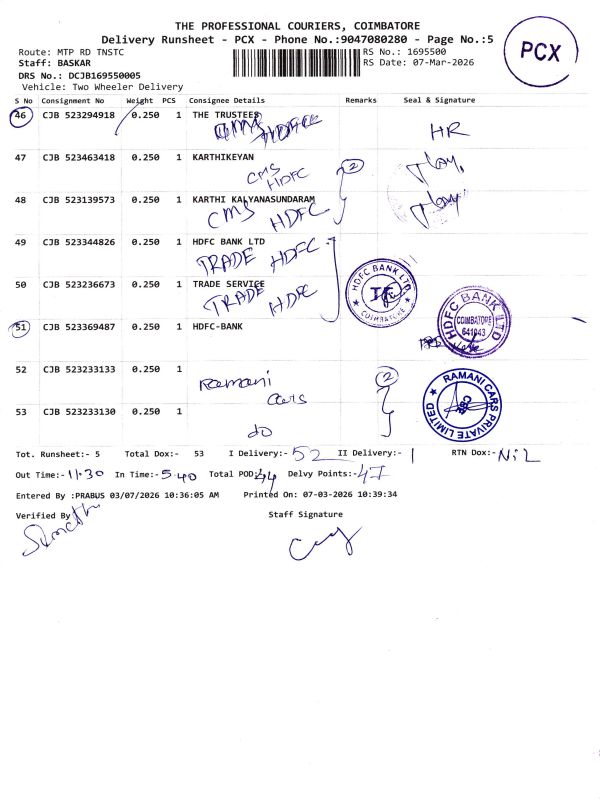 THE PROFESSIONAL COURIERS, COIMBATORE
Delivery Runsheet - PCX - Phone No.:9047080280 - Page No.:5
PCX
Route: MTP RD TNSTC
RS No.: 1695500
Staff: BASKAR
RS Date: 07-Mar-2026
DRS No.: DCJB169550005
Vehicle: Two Wheeler Delivery
S No Consignment No Weight PCS Consignee Details Remarks Seal & Signature
46 CJB 523294918 0.250 1 THE TRUSTEES
CMS HDFC
HR
47 CJB 523463418 0.250 1 KARTHIKEYAN
CMS HDFC
2
48 CJB 523139573 0.250 1 KARTHI KALYANASUNDARAM
CMS HDFC
49 CJB 523344826 0.250 1 HDFC BANK LTD
TRADE HDFC
50 CJB 523236673 0.250 1 TRADE SERVICE
TRADE HDFC
HDFC BANK LTD
COIMBATORE
51 CJB 523369487 0.250 1 HDFC-BANK
HDFC BANK LTD
COIMBATORE
641043
52 CJB 523233133 0.250 1
Ramani Cars
2
RAMANI CARS PRIVATE LIMITED
53 CJB 523233130 0.250 1
do
Tot. Runsheet:- 5 Total Dox:- 53 I Delivery:- 52 II Delivery:- 1 RTN Dox:- NiL
Out Time:- 11.30 In Time:- 5.40 Total POD: 44 Delvy Points:- 47
Entered By :PRABUS 03/07/2026 10:36:05 AM Printed On: 07-03-2026 10:39:34
Verified By Staff Signature